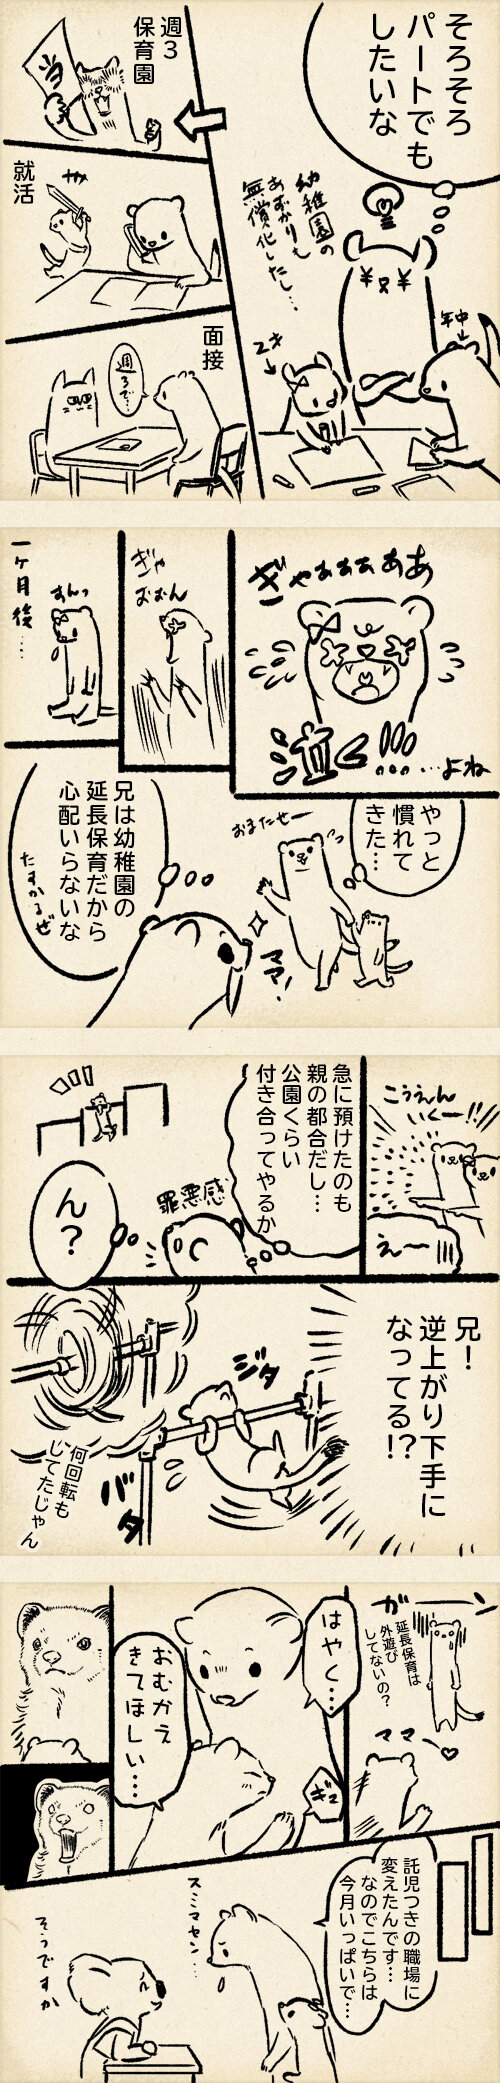 そろそろ
パートでも
したいな
幼稚園の
あずかりも
無償化したし…
年中
2才
週3
保育園
当
就活
面接
週3で…
ぎゃぁぁぁぁああ
泣く!!!
…よね
ぎゃ
おおん
すんっ
一ヶ月後……
やっと
慣れて
きた…
おまたせー
ママ!
兄は幼稚園の
延長保育だから
心配いらないな
たすかるぜ
こうえん
いくー!!
えー
急に預けたのも
親の都合だし…
公園くらい
付き合ってやるか
罪悪感
ん?
兄!
逆上がり下手に
なってる!?
ジタ
バタ
何回転も
してたじゃん
ガーン
延長保育は
外遊び
してないの?
ママ〜
はやく…
ギュ
おむかえ
きてほしい…
託児つきの職場に
変えたんです…
なのでこちらは
今月いっぱいで…
スミマセン…
そうですか